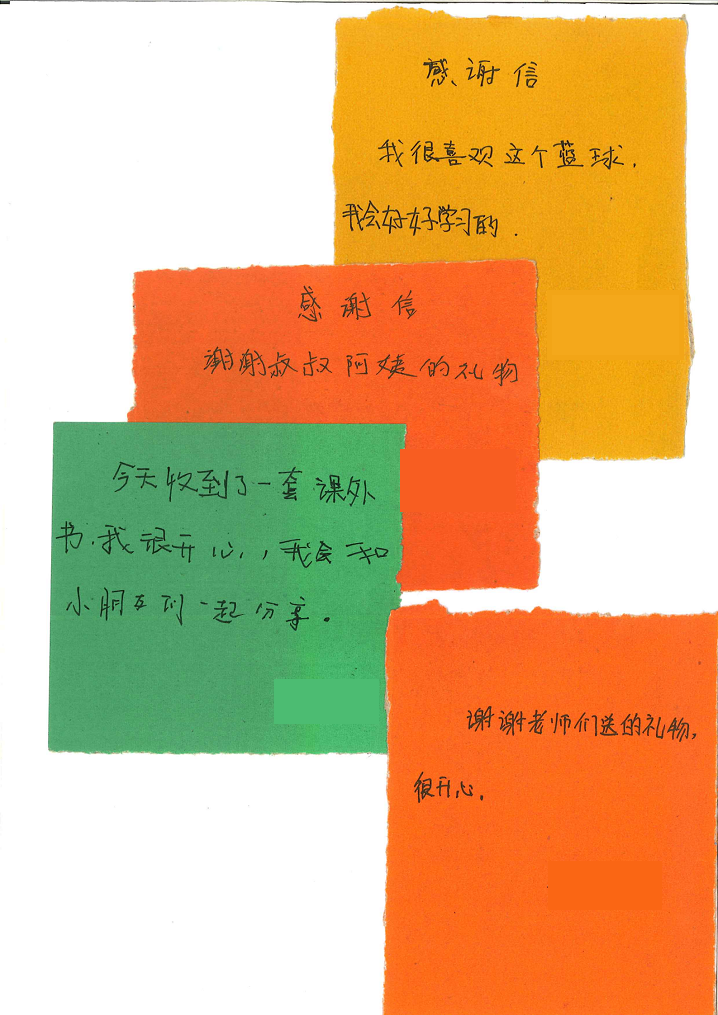 感谢信
我很喜观这个蓝球，
我会好好学习的.
感谢信
谢谢叔叔阿姨的礼物
今天收到了一套课外
书.我很开心,,我会和
小朋友们一起分享。
谢谢老师们送的礼物,
很开心.